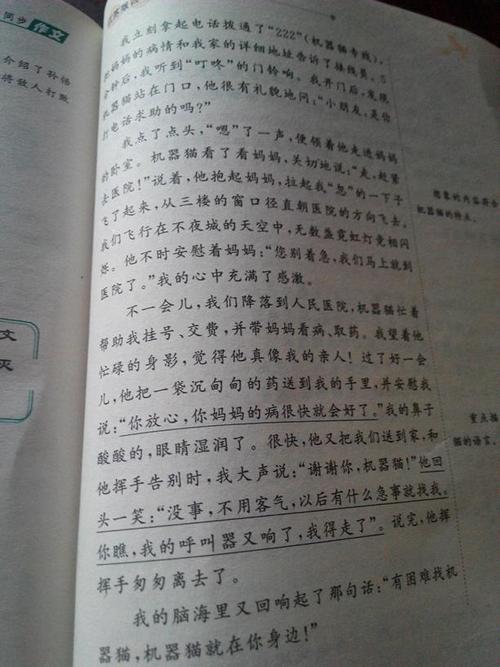 同步
作文
介绍了孙悟
将敌人打败
文
灭
我立刻拿起电话拨通了“222”(机器猫专线),
把妈妈的病情和我家的详细地址告诉了接线员。5
分钟后,我听到“叮咚”的门铃响。我开门后,发现
机器猫站在门口,他很有礼貌地问:“小朋友,是你
打电话求助的吗?”
我点了点头,“嗯”了一声,便领着他走进妈妈
的卧室。机器猫看了看妈妈,关切地说:“走,赶紧
去医院!”说着,他抱起妈妈,拉起我“忽”的一下子
飞了起来,从三楼的窗口径直朝医院的方向飞去。
我们飞行在不夜城的天空中,无数盏霓虹灯竞相闪
烁。他不时安慰着妈妈:“您别着急,我们马上就到
医院了。”我的心中充满了感激。
不一会儿,我们降落到人民医院,机器猫忙着
帮助我挂号、交费,并带妈妈看病、取药。我望着他
忙碌的身影,觉得他真像我的亲人!过了好一会
儿,他把一袋沉甸甸的药送到我的手里,并安慰我
说:“你放心,你妈妈的病很快就会好了。”我的鼻子
酸酸的,眼睛湿润了。很快,他又把我们送到家,和
他挥手告别时,我大声说:“谢谢你,机器猫!”他回
头一笑:“没事,不用客气,以后有什么急事就找我。
你瞧,我的呼叫器又响了,我得走了”。说完,他挥
挥手匆匆离去了。
我的脑海里又回响起了那句话:“有困难找机
器猫,机器猫就在你身边!”
想象的内容符合
机器猫的特点。
重点描
猫的语言。